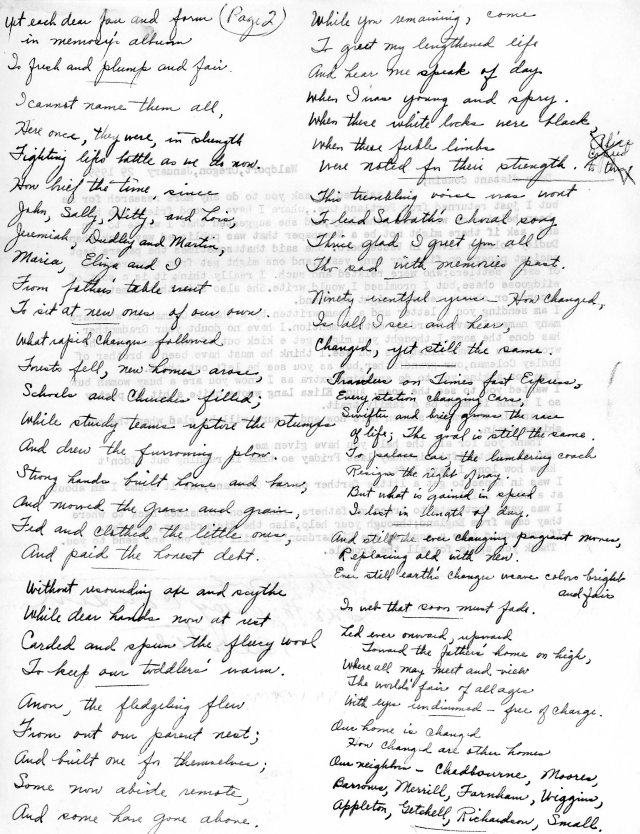 Yet each dear face and form (Page 2)
in memory's album
Is fresh and plump and fair.
I cannot name them all,
Here once, they were, in strength
Fighting life's battle as we do now.
How brief the time, since
John, Sally, Hitty, and Love,
Jeremiah, Dudley and Martin,
Maria, Eliza and I
From father's table went
To sit at new ones of our own.
What rapid changes followed
Forests fell, new homes arose,
Schools and Churches filled;
While sturdy teams uptore the stumps
And drew the furrowing plow.
Strong hands built house and barn,
And mowed the grass and grain,
Fed and clothed the little ones,
And paid the honest debt.
Without resounding axe and scythe
While dear hands now at rest
Carded and spun the fleecy wool
To keep our toddlers' warm.
Anon, the fledgeling flew
From out our parent nest;
And built one for themselves;
Some now abide remote,
And some have gone above.
While you remaining, come
To greet my lengthened life
And hear me speak of days
When I was young and spry.
When these white locks were black
When these feeble limbs
Were noted for their strength.
This trembling voice was wont
To lead Sabbath's Choral song
Thrice glad I greet you all
Tho sad with memories past.
Ninety eventful years - How changed,
Is all I see and hear,
Changed, yet still the same.
Travelers on Times fast Express,
Every station changing cars,
Swifter and brief grows the race
of life; The goal is still the same.
To palace car the lumbering coach
Resigns the right of way.
But what is gained in speed
Is lost in length of day.
And still the ever changing pageant moves,
Replacing old with new.
Ever still earth's changes weave colors bright
and fair
In web that soon must fade.
Led ever onward, upward
Toward the father's home on high,
Where all may meet and view
The world's fair of all ages
With eyes undimmed - free of charge.
Our home is chang'd
How chang'd are other homes
Our neighbors - Chadbourne, Moores,
Barrows, Merrill, Farnham, Wiggins,
Appleton, Getchell, Richardson, Small.